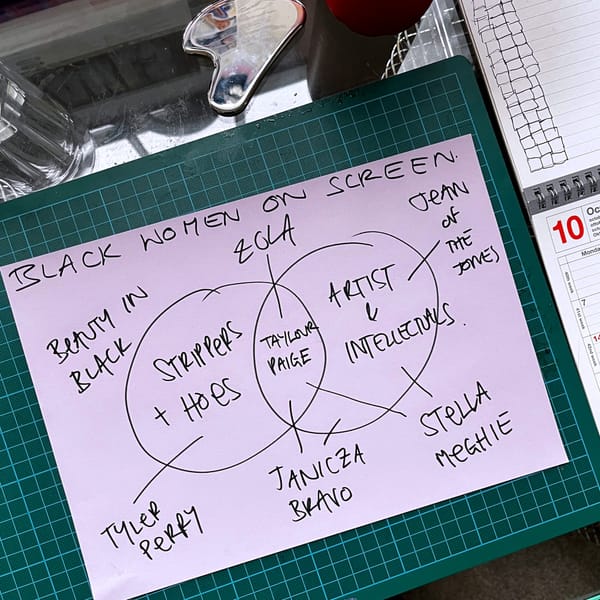 BLACK WOMEN ON SCREEN.
ZOLA
JEAN
OF
THE
JONES
BEAUTY IN
BLACK
STRIPPERS
+ HOES
TAYLOUR
PAIGE
ARTIST
&
INTELLECTUALS.
TYLER
PERRY
JANICZA
BRAVO
STELLA
MEGHIE
10
Oc
Monda
7
14